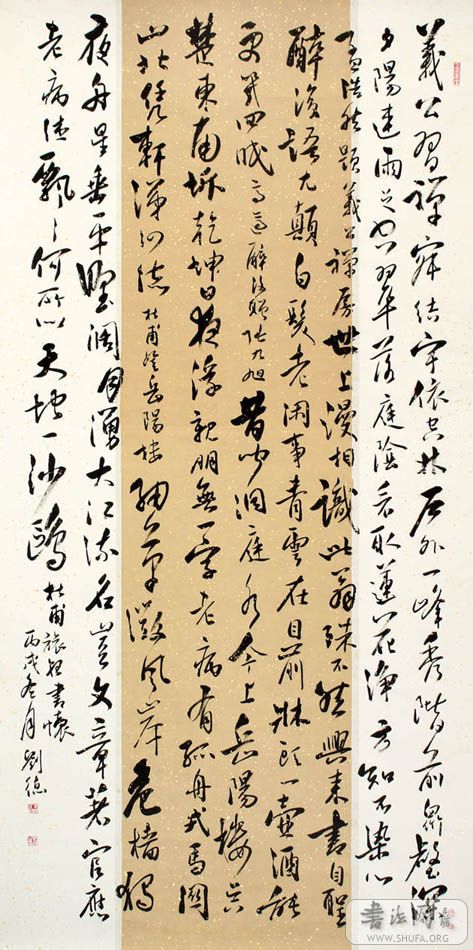 義公習禪寂結宇依空林戶外一峰秀階前眾壑深
夕陽連雨足空翠落庭陰看取蓮花淨方知不染心
孟浩然題義公禪房世上漫相識此翁殊不然興來書自聖
醉後語尤顛白髮老閑事青雲在目前牀頭一壺酒能
更幾回眠高適醉後贈張九旭昔聞洞庭水今上岳陽樓吳
楚東南坼乾坤日夜浮親朋無一字老病有孤舟戎馬關
山北憑軒涕泗流杜甫登岳陽樓細草微風岸危檣獨
夜舟星垂平野闊月湧大江流名豈文章著官應
老病休飄〻何所似天地一沙鷗杜甫旅夜書懷
丙戌冬月劉德
書法网
WWW.SHUFA.ORG